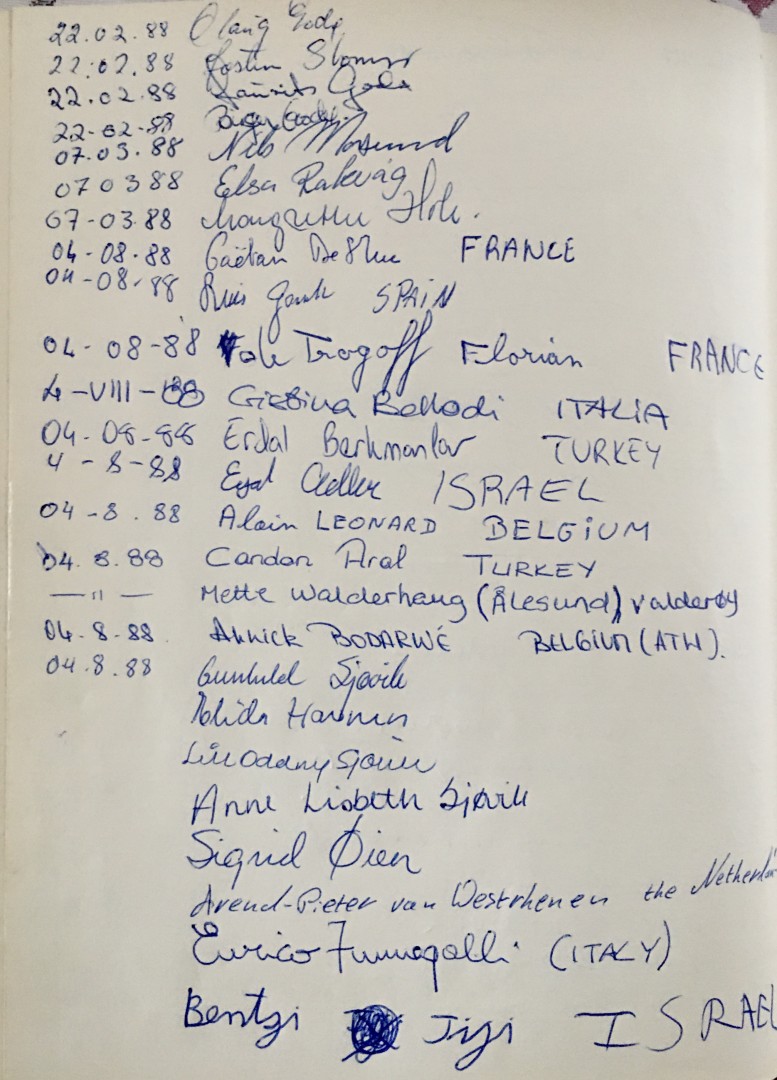 22.02.88 Olaug Gode
22.02.88 Jostein
22.02.88
22-02-88
07.03.88 Nils
070388 Elsa Rakvåg
07-03.88 Hole.
04-08-88 Gaëtan FRANCE
04-08-88 SPAIN
04-08-88 Trogoff Florian FRANCE
4-VIII-88 Cristina Bellodi ITALIA
04-08-88 Erdal Berkmanlar TURKEY
4-8-88 Eyal Adler ISRAEL
04-8.88 Alain LEONARD BELGIUM
04.8.88 Candan Aral TURKEY
— " — Mette Walderhaug (Ålesund) Valderøy
04.8-88 Annick BODARWÉ BELGIUM (ATH).
04.8.88 Gunhild Sjøvik
Hansen
Sjøvik
Anne Lisbeth Sjøvik
Sigrid Øien
Arend-Pieter van Westrhenen the
Enrico Fumagalli (ITALY)
Bentzi Jiji ISRAEL